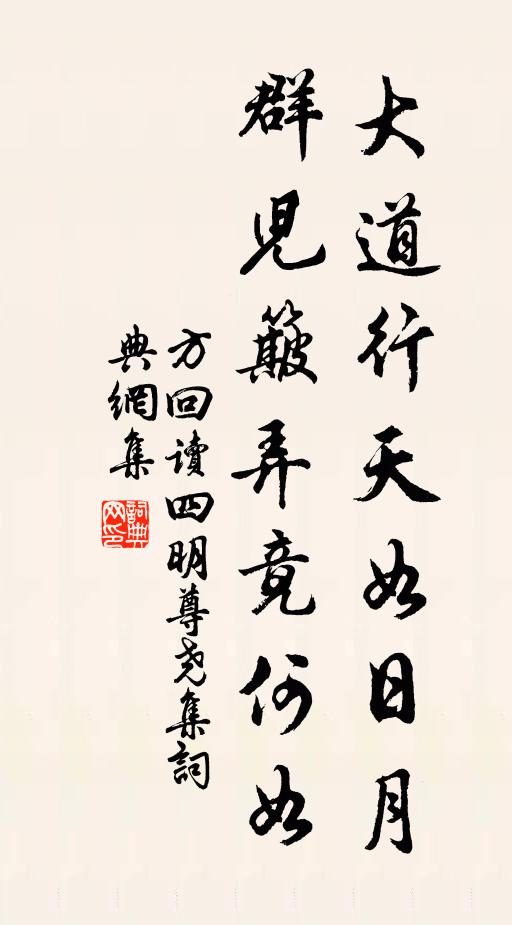 大道行天如日月
群児簸弄竟何如
方回讀四明尊尧集詞
典網集
詞典网印